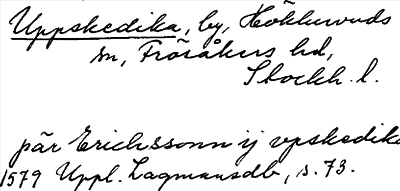 Uppskedika, by, Hökhuvuds
sn, Frösåkers hd,
Stockh. l.
pär Erichssonn ij vpskedika
1579 Uppl. Lagmansdb, s. 73.